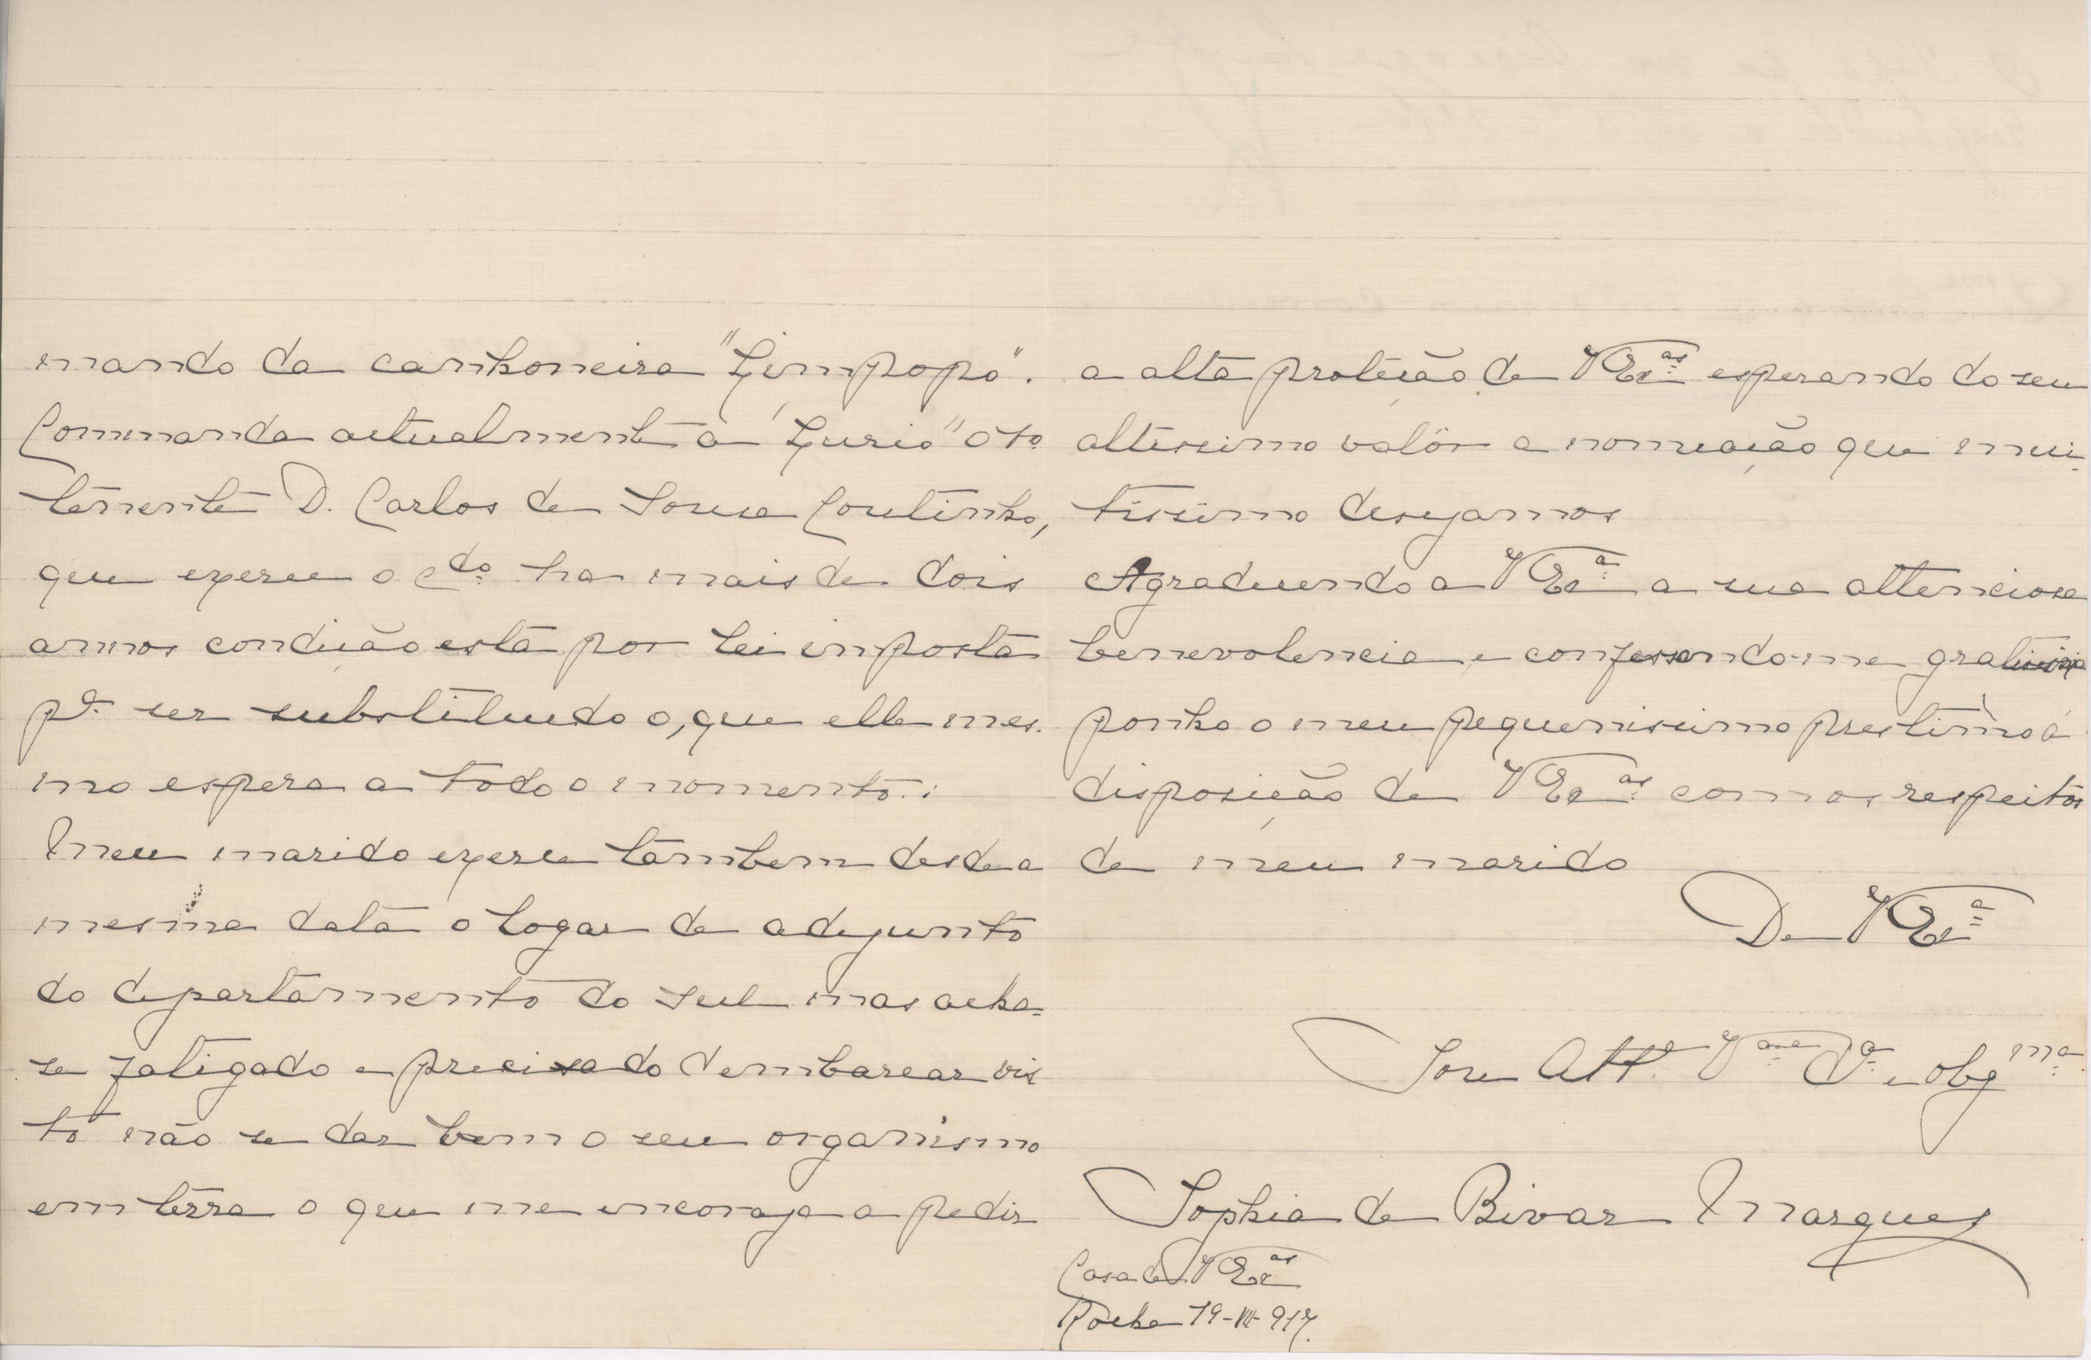 mando da canhoneira "Limpopo".
Commanda actualmente a "Lurio" o 1º
tenente D. Carlos de Sousa Coutinho,
que exerce o cdo. ha mais de dois
annos condição esta por lei imposta
pª ser substituido o, que elle mes-
mo espera a todo o momento.
Meu marido exerce tambem desde a
mesma data o logar de adejunto
do departamento do Sul mas acha-
se fatigado e precisado d'embarcar vis
to não se dar bem o seu organismo
em terra o que me encoraja a pedir
a alta proteção de V Exas esperando do seu
altissimo valôr a nomeação que mui-
tissimo desejamos
Agradecendo a V Exª a sua attenciosa
benevolencia e confessando-me gratissima
ponho o meu pequenissimo prestimo á
disposição de V Exas com os respeitos
de meu marido
De V Exª
Sou Attª Vora Cª e obgma
Sophia de Bivar Marques
Casa de V Exas
Rocha 19-VII-917.